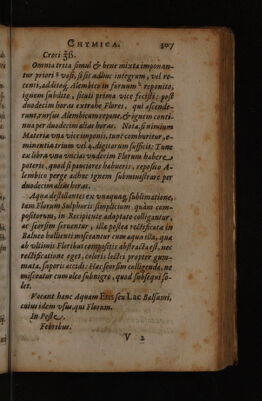 CHYMICA. 307
Croci ʒß.
Omnia trita simul & bene mixta imponan-
tur priori vasi, si sit adhuc integrum, vel re-
centi, additoq́; Alembico in furnum reposito,
ignem subdito, sicuti prima vice fecisti: post
duodecim horas extrahe Flores, qui ascende-
runt, rursus Alembicum repone, & ignem conti-
nua per duodecim alias horas. Nota, si nimium
Materia una vice imponis, tunc comburitur, e-
minentia trium vel 4. digitorum sufficit: Tunc
ex libra una uncias undecim Florum habere
poteris, quod si pauciores habueris, reposito A-
lembico perge adhuc ignem subministrare per
duodecim alias horas.
Aqua destillantes ex unaquaq; sublimatione,
tam Florum Sulphuris simplicium, quàm com-
positorum, in Recipiente adaptato colligantur,
ac seorsim servantur, illa postea rectificata in
Balneo bullienti misceantur cum aqua illa, qua
ab ultimis Floribus compositis abstracta est, nec
rectificatione eget, coloris lactei propter gum-
mata, saporis acidi: Hac seorsim colligenda, ne
misceatur cum oleo subnigro, quod subsequi so-
let.
Vocant hanc Aquam Ens seu Lac Balsami,
cuius idem usus, qui Florum.
In Peste.
Febribus.
V 2